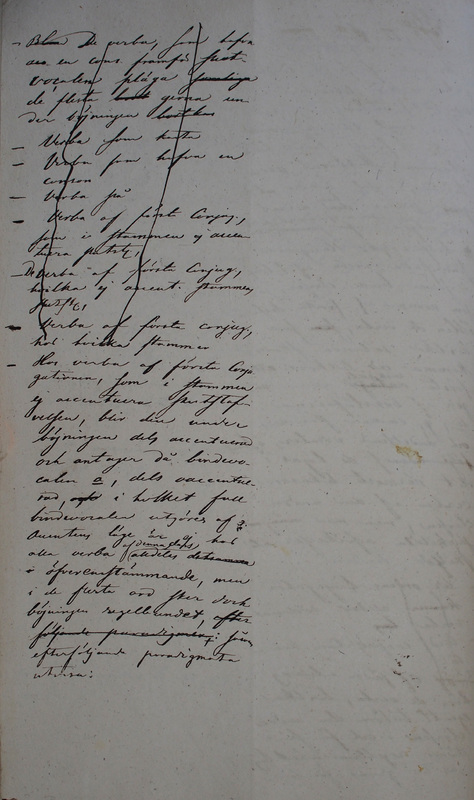 – De verba, som hafva
en cons. framför slut-
vocalen pläga
de flesta gerna un-
der böjningen
– Verba som kasta
– Verba som hafva en
conson
– Verba på
– Verba af förste Conjug.,
som i stammen ej accen-
tuera
– De verba af förste Conjug,
hvilka ej accent. stammens
– Verba af förste conjug,
hos hvilka stammen
– Hos verba af förste Conju-
gationen, som i stammen
ej accentuera slutstaf-
velsen, blir den under
böjningen dels accentuerad
och antager då bindevo-
calen a, dels oaccentue-
rad, i hvilket fall
bindevocalen utgöres af
Accentens läge är ej hos
alla verba af denna klass alldeles
öfverensstämmande, men
i de flesta ord sker dock
böjningen regelbundet, efter
följande paradigmen: som
efterföljande paradigmata
utvisa: